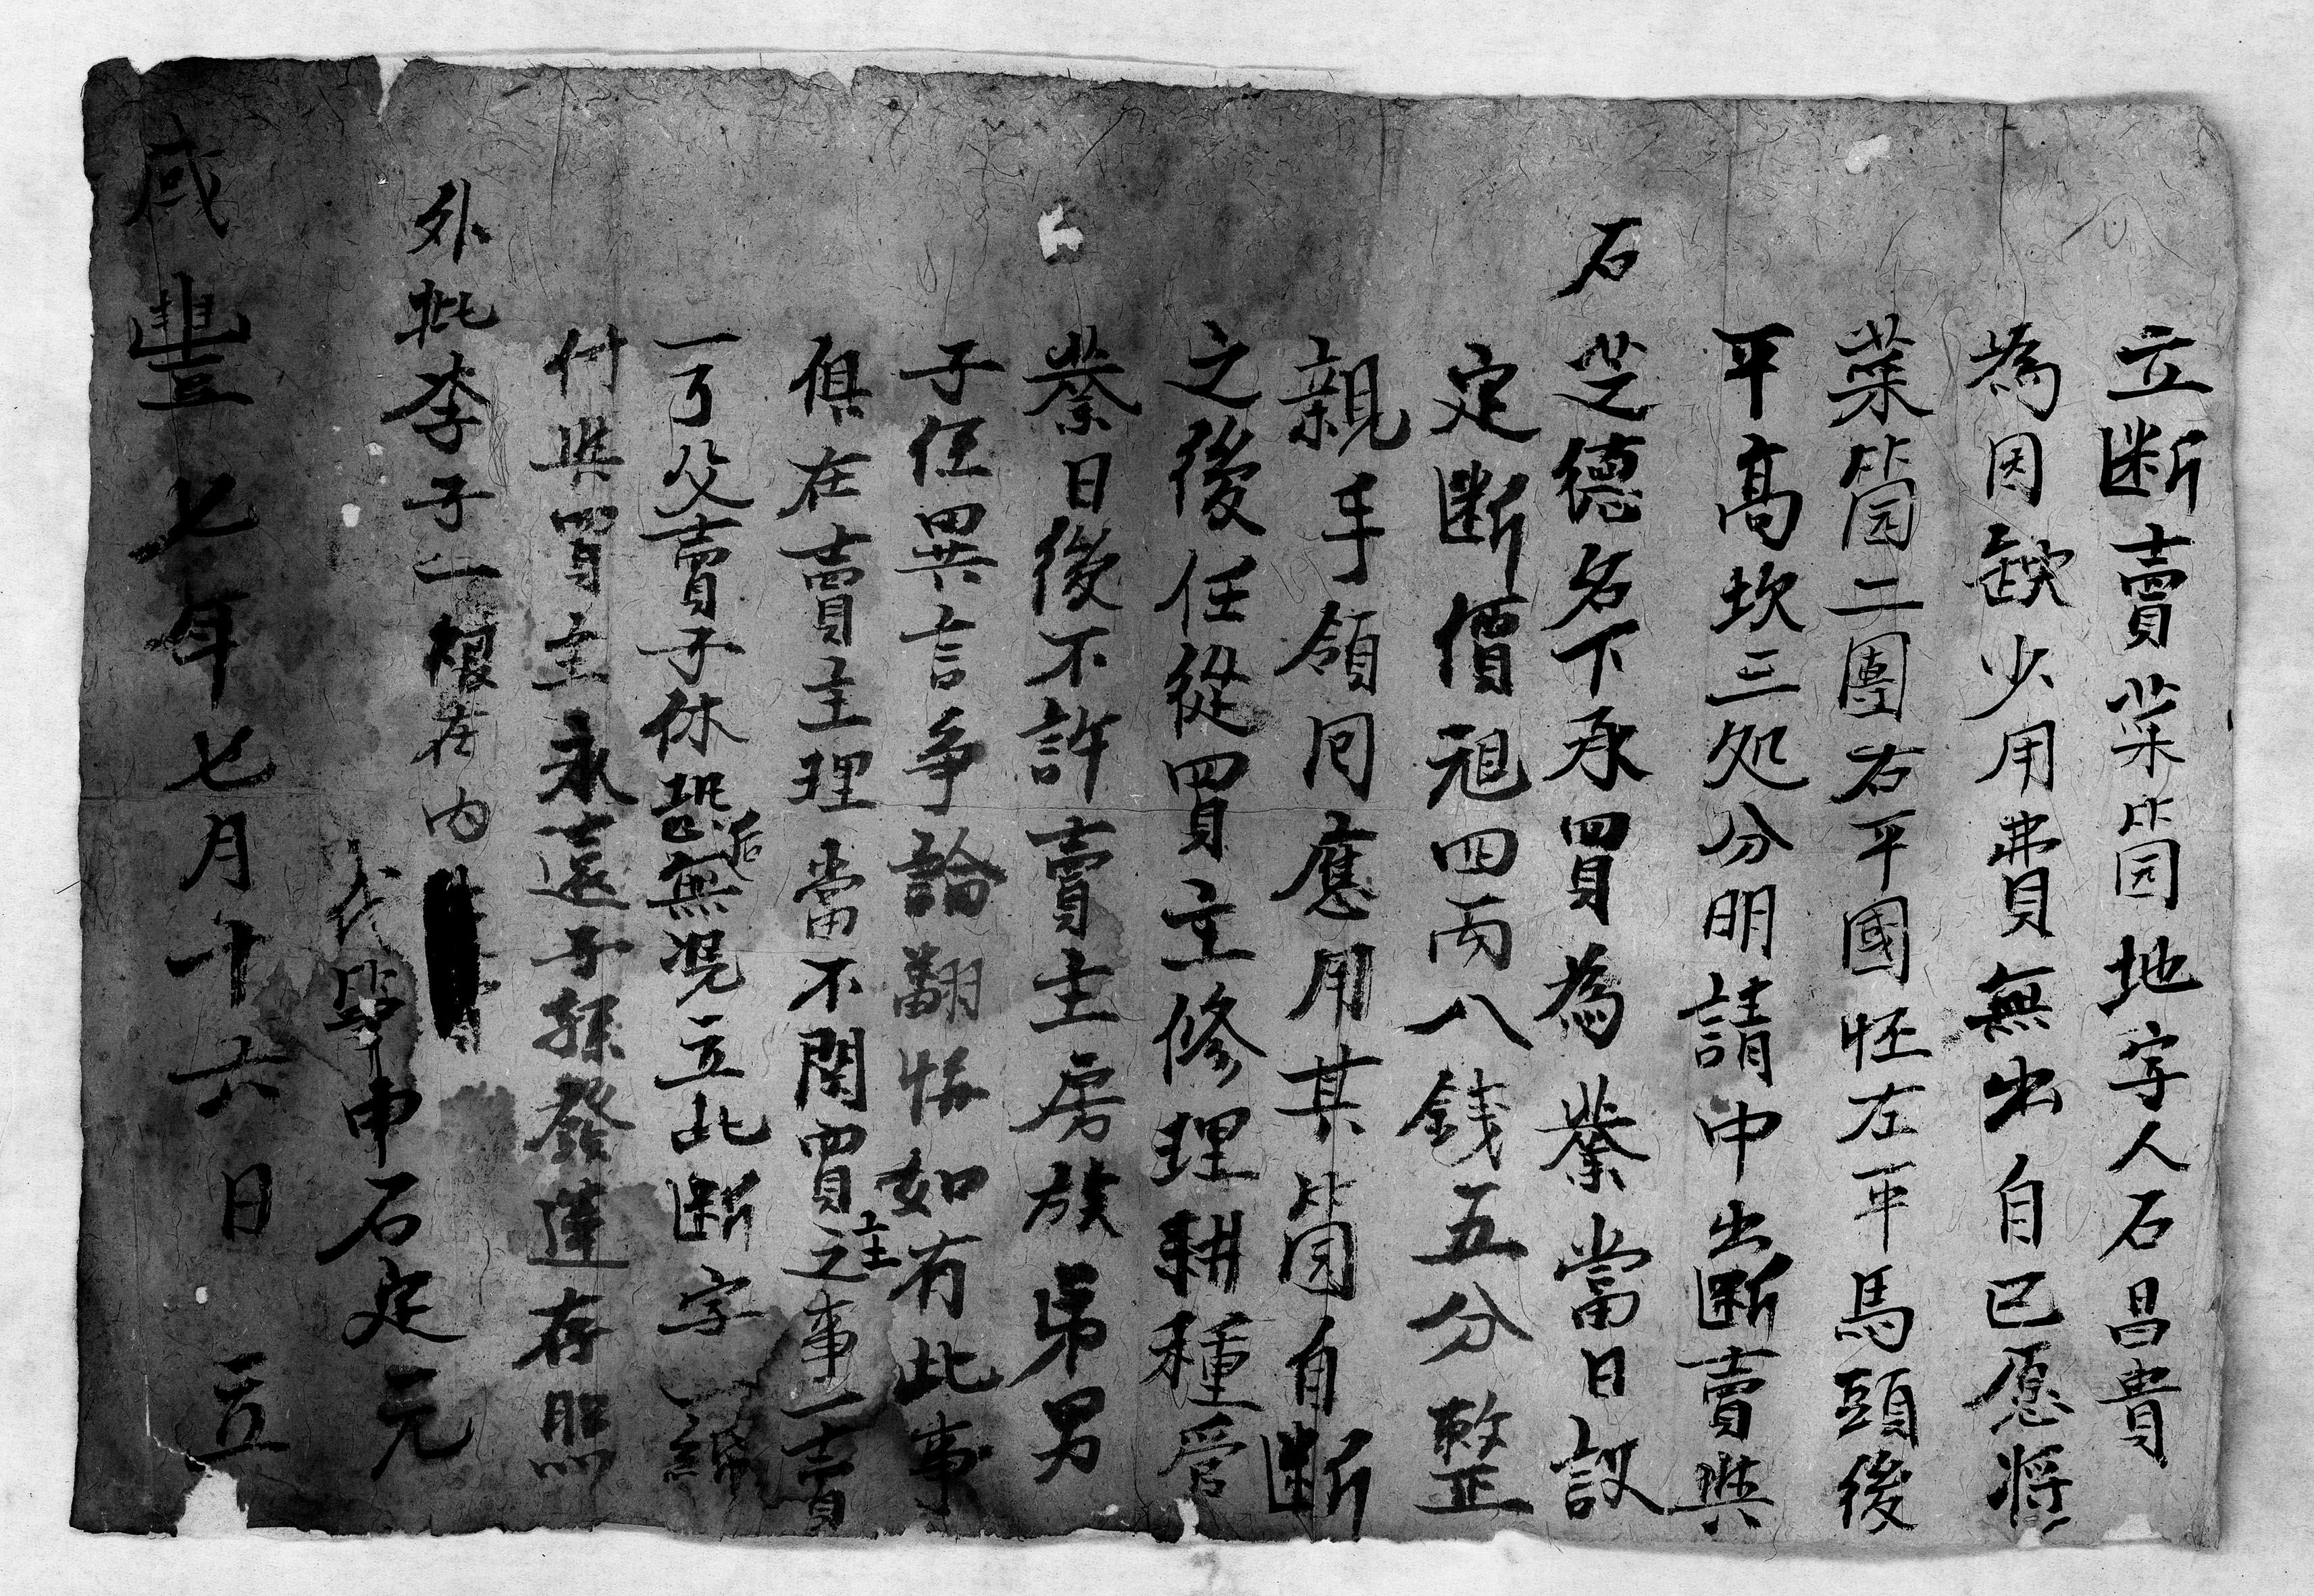 立断賣菜園地字人石昌貴
為因缺少用費無出自己愿将
菜園二團右平國怌左平馬頭後
平高坎三処分明請中出断賣與
石芝德名下承買為業當日議
定断價冠四両八錢五分整
親手領囘應用其園自断
之後任從買主修理耕種管
業日後不許賣主房族弟男
子侄異言爭論翻悔如有此事
俱在賣主理當不関買主之事一賣
一了父賣子休恐后無憑立此断字一綿
付與買主永遠子孫發達存照
外批李子一根在内
代筆申石定元
咸豐七年七月十六日立